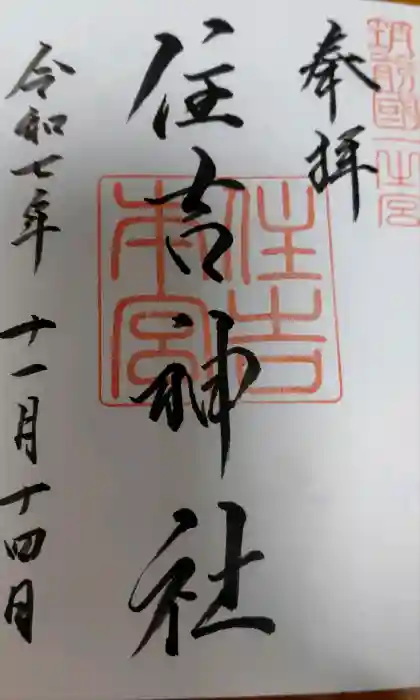 筑前國一之宮
奉拝
住吉神社
住吉本宮
令和七年 十一月十四日